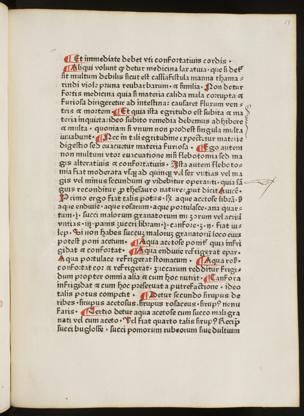 Et immediate debet vti confortatiuis cordis.
Aliqui volunt detur medicina laxatiua. que si deſ
ſit multum debilis ſicut est caſſiafiſtula manna thama-
rindi viole pruna reubarbarum. et ſimilia. Non detur
fortis medicina quia ſi materia calida mala corrupta et
furioſa dirigeretur ad inteſtina: cauſaret fluxum ven-
tris et mortem Et quia iſta egritudo eſt ſubita et ma
teria inquieta: ideo ſubito remedia debemus adhibere
et multa. quoniam ſi vnum non prodeſt ſingula multa
iuuabunt. Nec in tali egritudine expectetur materie
digeſtio ſed euacuetur materia furioſa. Ego autem
non multum vtor euacuatione niſi flebotomia ſed ma
gis alteratiuis et confortatiuis. Iſta autem flebotomia
mia fiat moderata
gis vel minus ſecundum
guis reconditur theſauro nature.
Primo ergo fiat talis potus. aque acetoſe
aque endiuie. aque roſarum. aque portulace. ana quar-
tum. ſucci malorum granatorum
et fiat iu-
lep. Si non habes ſuccum malorum granatorum loco eius
poteſt poni acetum. Aqua acetoſe ponit quia infri
gidat et confortat. Aqua endiuie refrigerat epar.
Aqua portulace refrigerat ſtomacum. Aqua roſ.
confortat cor et refrigerat. zuccarum redditur frigi-
dum propter omnia alia et cum hoc nutrit. Canfora
infrigidat et cum hoc preſeruat a putrefactione. ideo
talis potus competit. Detur ſecundo ſirupus de
ribes. ſirupus acetoſus. ſirupus roſaceus. ſirup.
ſaris. Tertio detur aqua acetoſe cum ſucco mali gra
nati vel cum aceto. Vel fiat quarto talis ſirup.
ſucci bugloſſe. ſucci pomorum rubeorum ſiue dultium